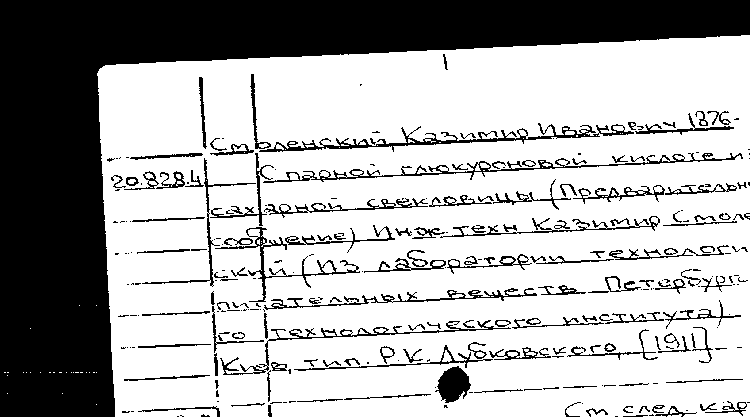 Смоленский, Казимир Иванович, 1876-
20.828.4 С парной глюкуроновой кислоте из
сахарной свекловицы (Предварительн
сообщение) Инж. техн Казимир Смоле
ский (Из лаборатории технологи
питательных веществ Петербург
го технологического института)
Киев, тип. Р.К. Лубковского, [1911]
См. след. кар